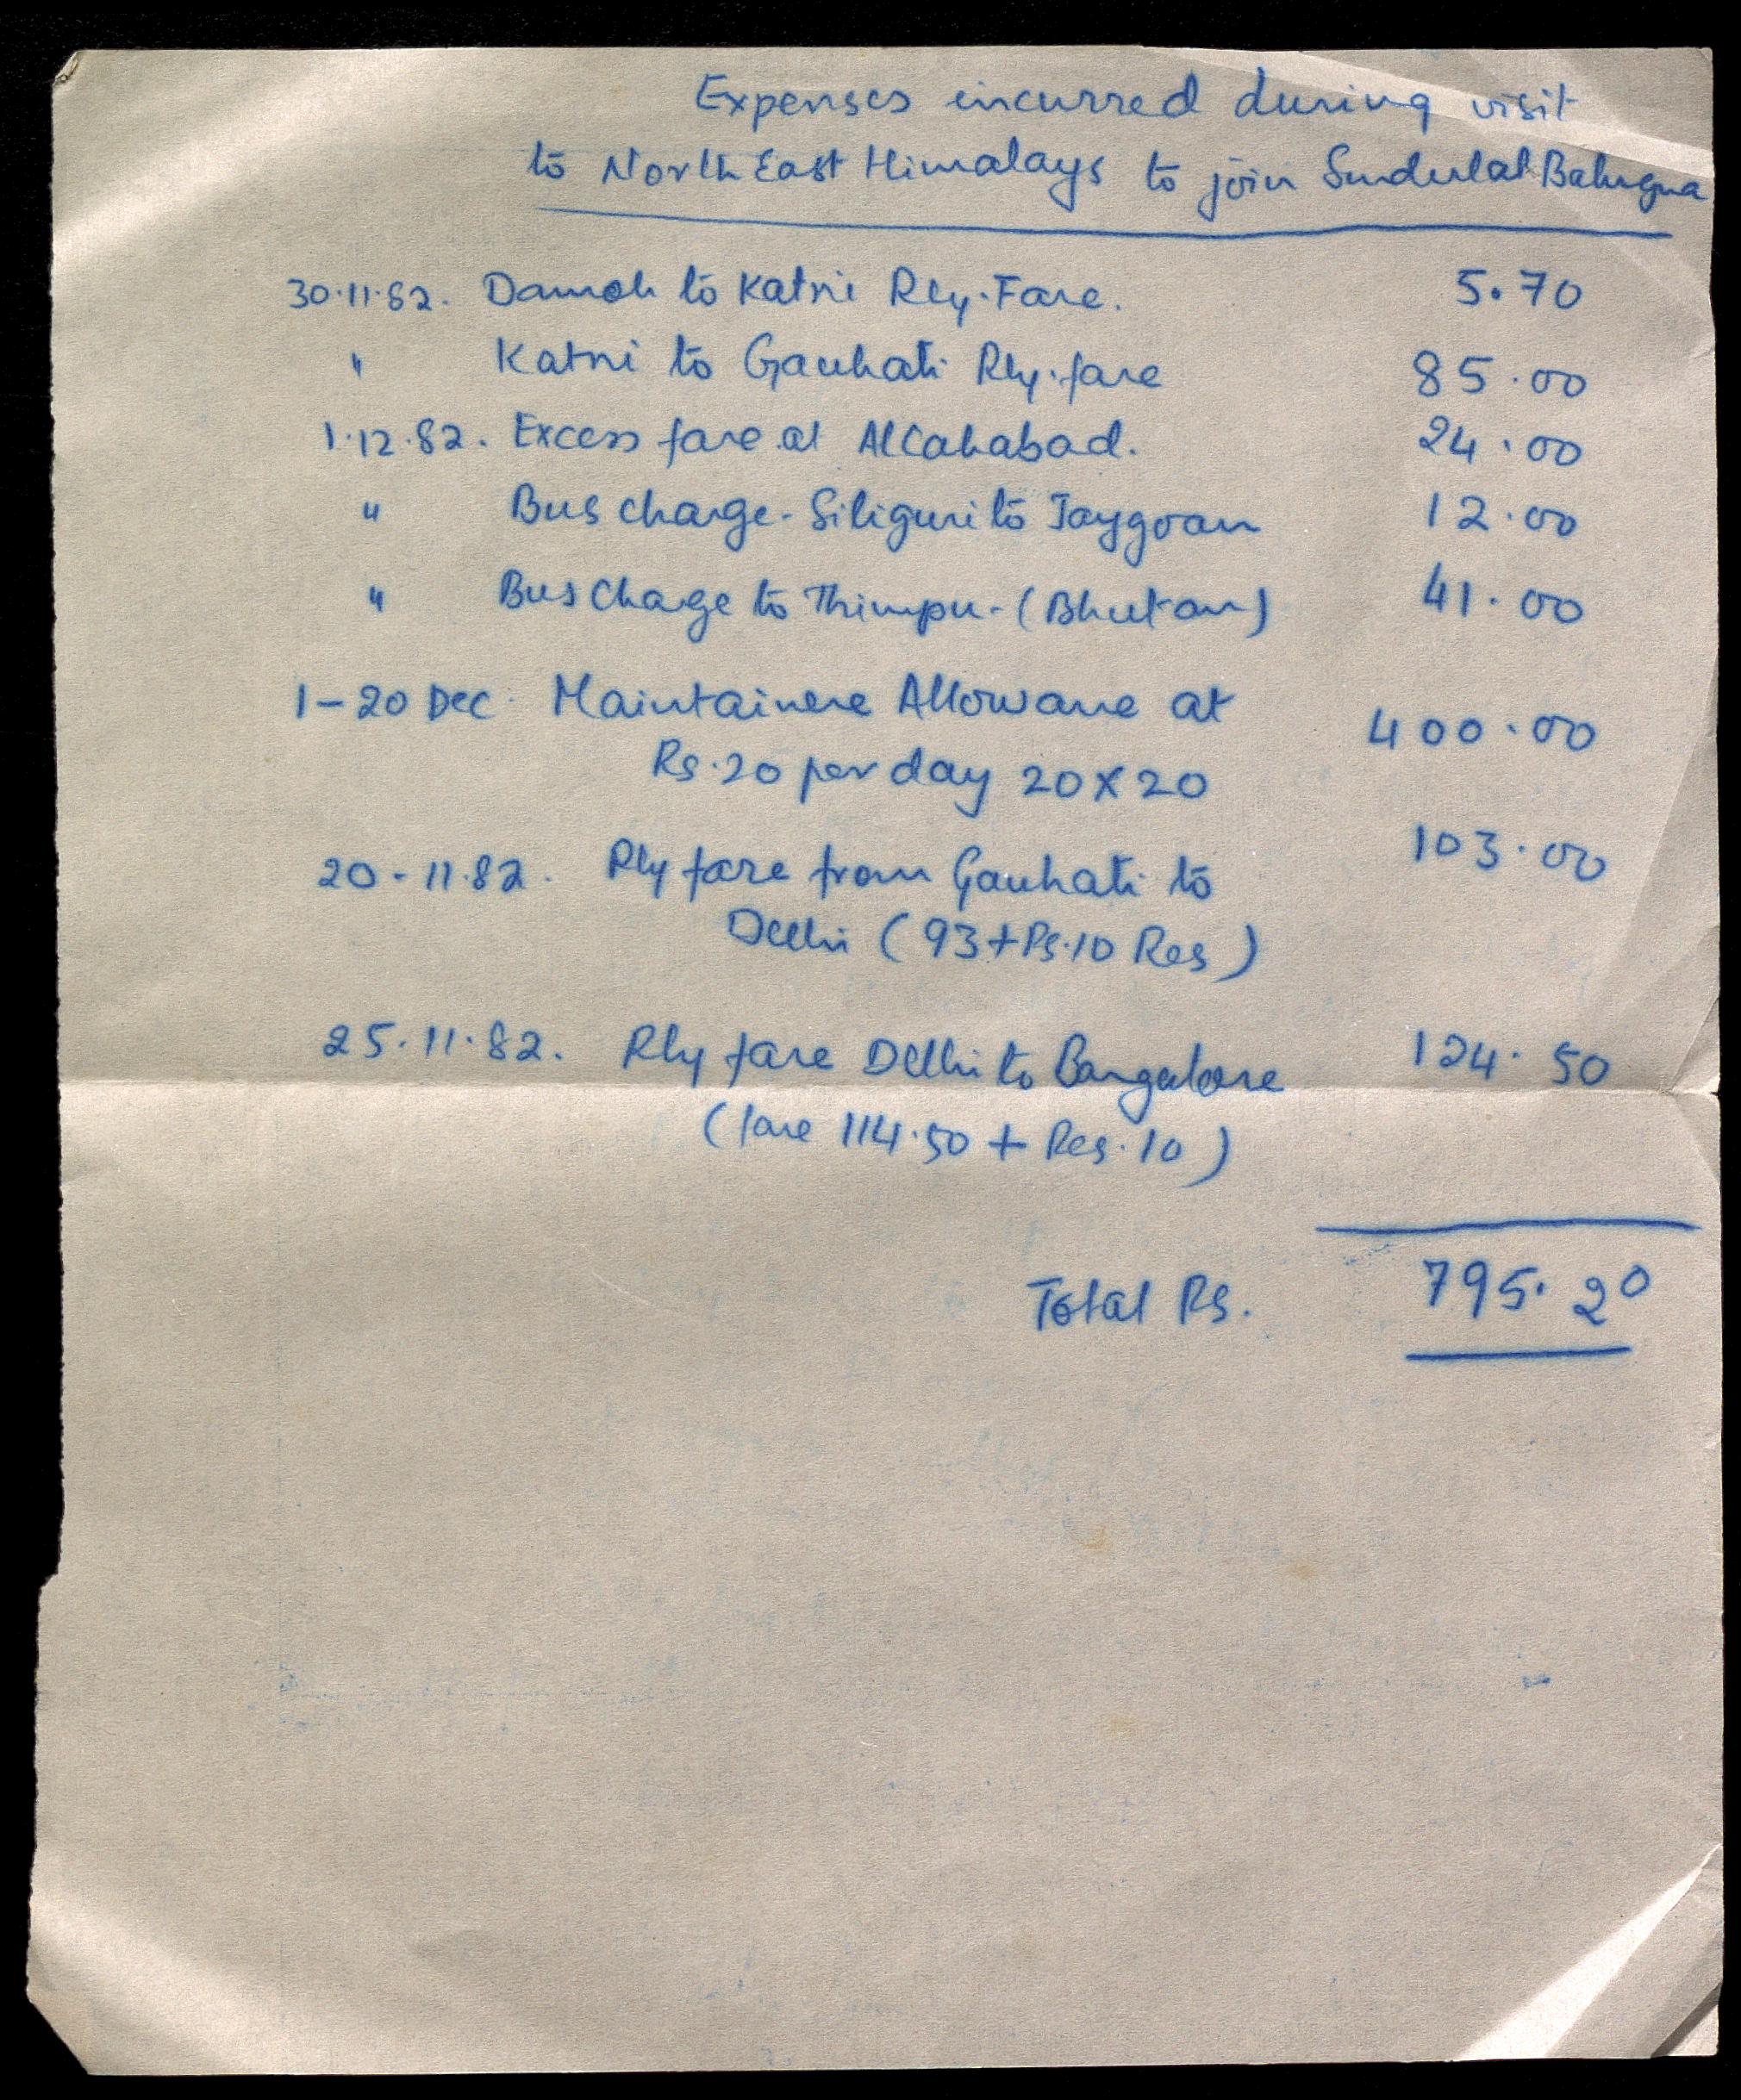 Expenses incurred during visit
to North East Himalays to join Sunderlal Bahugna
30.11.82. Damoh to Katni Rly. Fare. 5.70
" Katni to Gauhati Rly. fare 85.00
1.12.82. Excess fare at Allahabad. 24.00
" Bus charge - Siliguri to Jaygoan 12.00
" Bus Charge to Thimpu - (Bhutan) 41.00
1-20 Dec. Maintainence Allowance at 400.00
Rs. 20 per day 20 X 20
20-11.82. Rly fare from Gauhati to 103.00
Delhi (93+Rs.10 Res)
25.11.82. Rly fare Delhi to Bangalore 124.50
(fare 114.50 + Res. 10)
Total Rs. 795.20